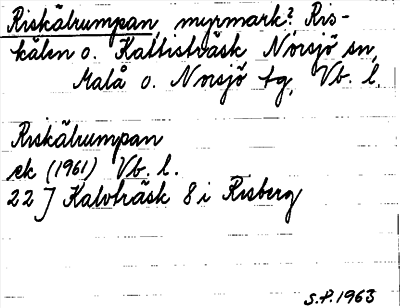 Riskälrumpan, myrmark?, Ris-
kälen o. Kattisträsk Norsjö sn,
Malå o. Norsjö tg, Vb. l.
Riskälrumpan
ek (1961) Vb. l.
22 J Kalvträsk 8 i Risberg
S.P. 1963